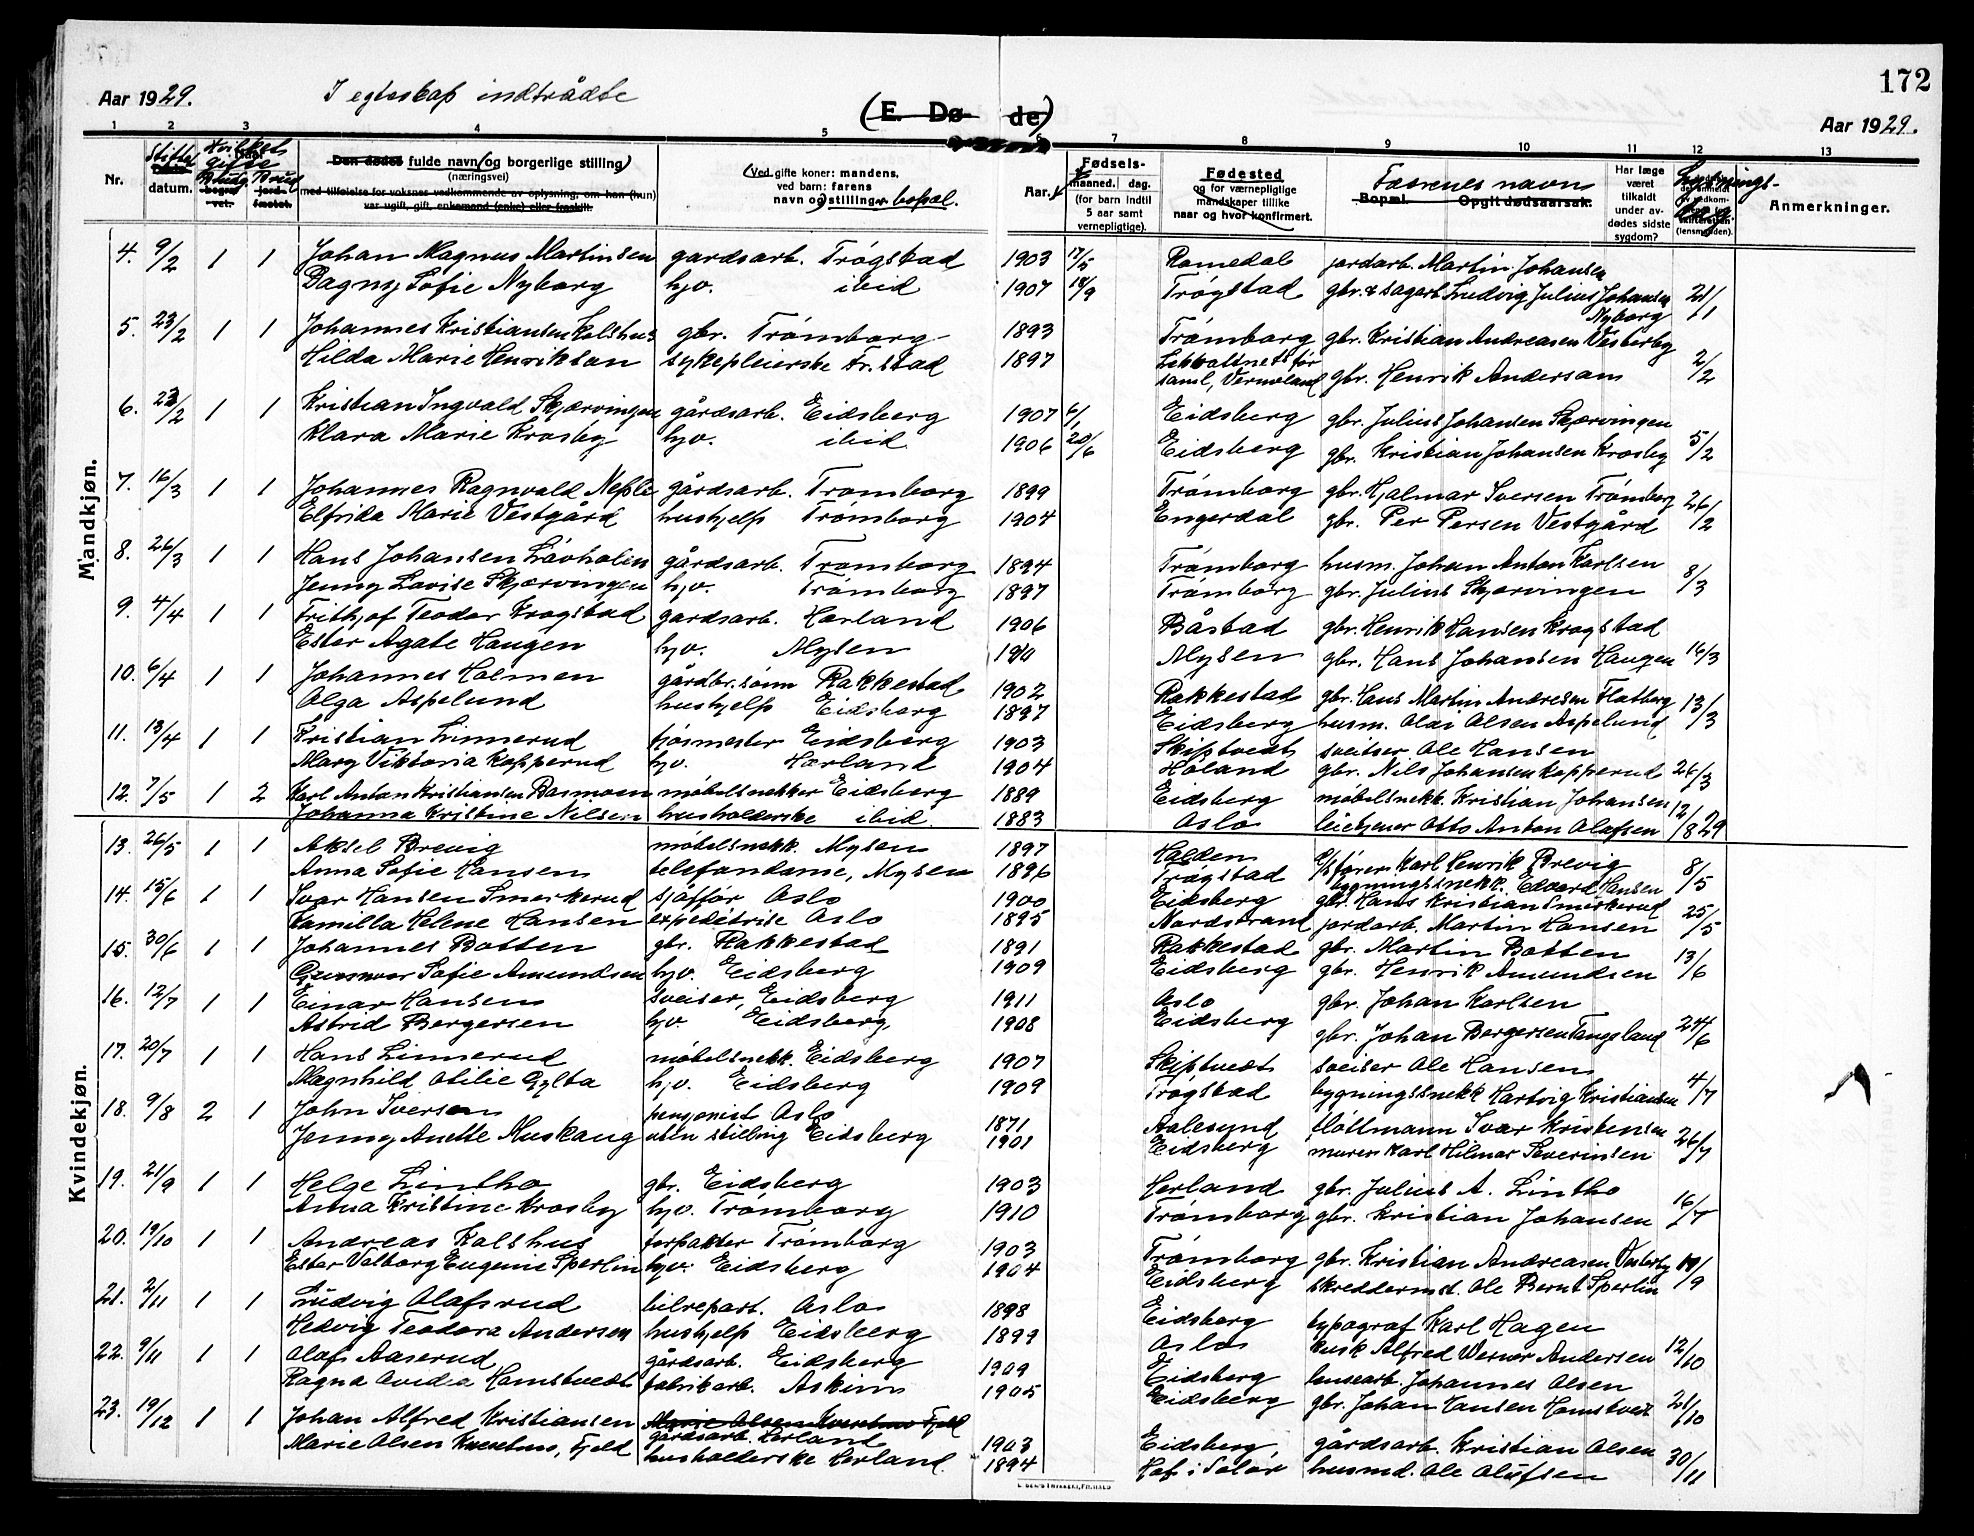 172
Aar 1929. I egteskap indtrådte (E. Dø de) Aar 1929.
1 2 3 4 5 6 7 8 9 10 11 12 13
Nr. datum. Hvilket gifte Brudg. Brud
Den dødes fulde navn (og borgerlige stilling)
(næringsvei)
med tilføielse for voksnes vedkommende av oplysning, om han (hun)
var ugift, gift, enkemand (enke) eller fraskilt.
(Ved gifte koner: mandens,
ved barn: farens
navn og stilling bopæl.
Aar.
Fødsels-
maaned. dag.
(for barn indtil
5 aar samt
vernepligtige).
Fødested
og for værnepligtige
mandskaper tillike
naar og hvor konfirmert.
Fædrenes navn
Bopæl. Opgit dødsaarsak.
Har læge
været
tilkaldt
under av-
dødes sidste
sygdom?
Lysnings-
dag
(lensmanden).
Anmerkninger.
Mandkjøn.
4. 9/2 1 1 Johan Magnus Martinsen gardsarb. Trøgstad 1903 17/5 Romedal jordarb. Martin Johansen
Dagny Sofie Nyborg hjv. ibid 1907 18/9 Trøgstad gbr. & sagarb Ludvig Julius Johansen Nyborg 21/1
5. 23/2 1 1 Johannes Kristiansen Kolshus gbr. Trømborg 1893 Trømborg gbr. Kristian Andreasen Vesterby
Hilda Marie Henrikson sykepleierske Fr.stad 1897 saml, Vermeland gbr. Henrik Anderson 2/2
6. 23/2 1 1 Kristian Ingvald Skjærvingen gårdsarb. Eidsberg 1907 6/1 Eidsberg gbr. Julius Johansen Skjærvingen
Klara Marie Krosby hjv. ibid 1906 20/6 Eidsberg gbr. Kristian Johansen Krosby 5/2
7. 16/3 1 1 Johannes Ragnvald Nesle gårdsarb. Tromborg 1899 Trømborg gbr. Hjalmar Iversen Trømborg
Elfrida Marie Vestgård hushjelp Trømborg 1904 Engerdal gbr. Per Persen Vestgård 26/2
8. 26/3 1 1 Hans Johansen Låvholm gårdsarb. Tromborg 1894 Trømborg husm. Johan Anton Karlsen
Jenny Lovise Skjærvingen hjv. Trømborg 1897 Trømborg gbr. Julius Skjærvingen 8/3
9. 4/4 1 1 Frithjof Teodor Krogstad gardsarb. Hærland 1906 Båstad gbr. Henrik Hansen Krogstad
Ester Agate Haugen hjv. Mysen Mysen gbr. Hans Johansen Haugen 16/3
10. 6/4 1 1 Johannes Holmen gårdbr.sønn Rakkestad 1902 Rakkestad gbr. Hans Martin Andresen Flatberg
Olga Aspelund hushjelp Eidsberg 1897 Eidsberg husm. Olai Olsen Aspelund 13/3
11. 13/4 1 1 Kristian Linnerud fjøsmester Eidsberg 1903 Skiptvedt sveitser Ole Hansen
Mary Viktoria Kopperud hjv. Hærland 1904 Høland gbr. Nils Johansen Kopperud 26/3
12. 7/5 1 2 Karl Anton Kristiansen møbelsnekker Eidsberg 1889 Eidsberg møbelsnekk. Kristian Johansen
Johanna Kristine Nilsen husholderske ibid. 1883 Oslo Otto Anton Olafsen 12/8 29
Kvindekjøn.
13. 26/5 1 1 Aksel Brevig møbelsnekk. Mysen 1897 Halden Karl Henrik Brevig
Anna Sofie Hansen telefondame, Mysen 1896 Trøgstad bygningssnekk. Edvard Hansen 8/5
14. 15/6 1 1 Ivar Hansen Smerkerud sjåffør Oslo 1900 Eidsberg gbr. Hans Kristian Smerkerud
Kamilla Helene Hansen expeditrise Oslo 1895 Nordstrand jordarb. Martin Hansen 25/5
15. 30/6 1 1 Johannes Botten gbr. Rakkestad 1891 Rakkestad gbr. Martin Botten
Gunvor Sofie Amundsen hjv. Eidsberg 1909 Eidsberg gbr. Henrik Amundsen 13/6
16. 12/7 1 1 Einar Hansen sveiser, Eidsberg 1911 Oslo gbr. Johan Karlsen
Astrid Bergersen hjv. Eidsberg 1908 Eidsberg gbr. Johan Bergersen Tangsland 24/6
17. 20/7 1 1 Hans Linnerud møbelsnekk. Eidsberg 1907 Skiptvedt sveiser Ole Hansen
Magnhild Otilie Gylta hjv. Eidsberg 1909 Trøgstad bygningssnekk Hartvig Kristiansen 4/7
18. 9/8 2 1 John Iversen pensjonist Oslo 1871 Aalesund fløttmann Ivar Kristensen
Jenny Anette Muskaug uten stilling Eidsberg 1901 Eidsberg murer Karl Hilmar Severinsen 26/7
19. 21/9 1 1 Helge Lintho gbr. Eidsberg 1903 Herland gbr. Julius A. Lintho
Anna Kristine Krosby hjv. Trømborg 1910 Trømborg gbr. Kristian Johansen 16/7
20. 19/10 1 1 Andreas Kolshus forpakter Trømborg 1903 Trømborg gbr. Kristian Andreasen Vesterby
Ester Valborg Eugenie Sperlin hjv. Eidsberg 1904 Eidsberg skreddermst. Ole Bernt Sperlin 19/9
21. 2/11 1 1 Ludvig Olafsrud bilrepart. Oslo 1898 Eidsberg typograf Karl Hagen
Hedvig Teodora Andersen hushjelp Eidsberg 1899 Oslo kusk Alfred Werner Andersen 12/10
22. 9/11 1 1 Olaf Aaserud gårdsarb. Eidsberg 1909 Eidsberg Johannes Olsen
Ragna Ovidia Homstvedt fabrikarb. Askim 1905 Eidsberg gbr. Johan Hansen Homstvedt 21/10
23. 19/12 1 1 Johan Alfred Kristiansen gårdsarb. Herland 1903 Eidsberg, gårdsarb. Kristian Olsen
Marie Olsen Fjeld husholderske Herland. 1894 Hof i Solør husmd. Ole Olufsen 30/11